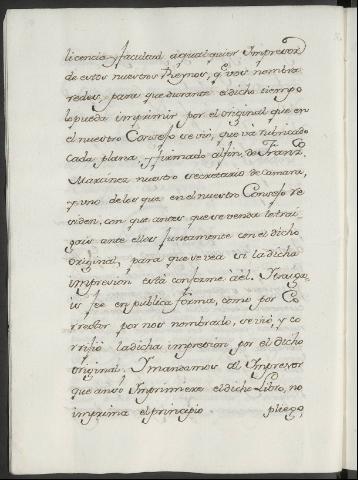 licencia y facultad a qualquier Impresor
de estos nuestros Reynos, q.e vos nombra
redes, para que durante el dicho tiempo
lo pueda imprimir por el original que en
el nuestro Consejo se vió, que vá rubricado
cada plana, y firmado al fin, de Fran.co
Martinez nuestro secretario de Camara,
y uno de los que en el nuestro Consejo re
siden, con que antes que se venda le trai
gais ante ellos juntamente con el dicho
original, para que se vea si la dicha
impresion está conforme á él. Traiga
is fee en publica forma, como por Co
rrector por nos nombrado, se vió, y co
rrijió la dicha impresion por el dicho
original. Y mandamos al Impresor
que ansi Imprimiere el dicho Libro, no
imprima el principio pliego,